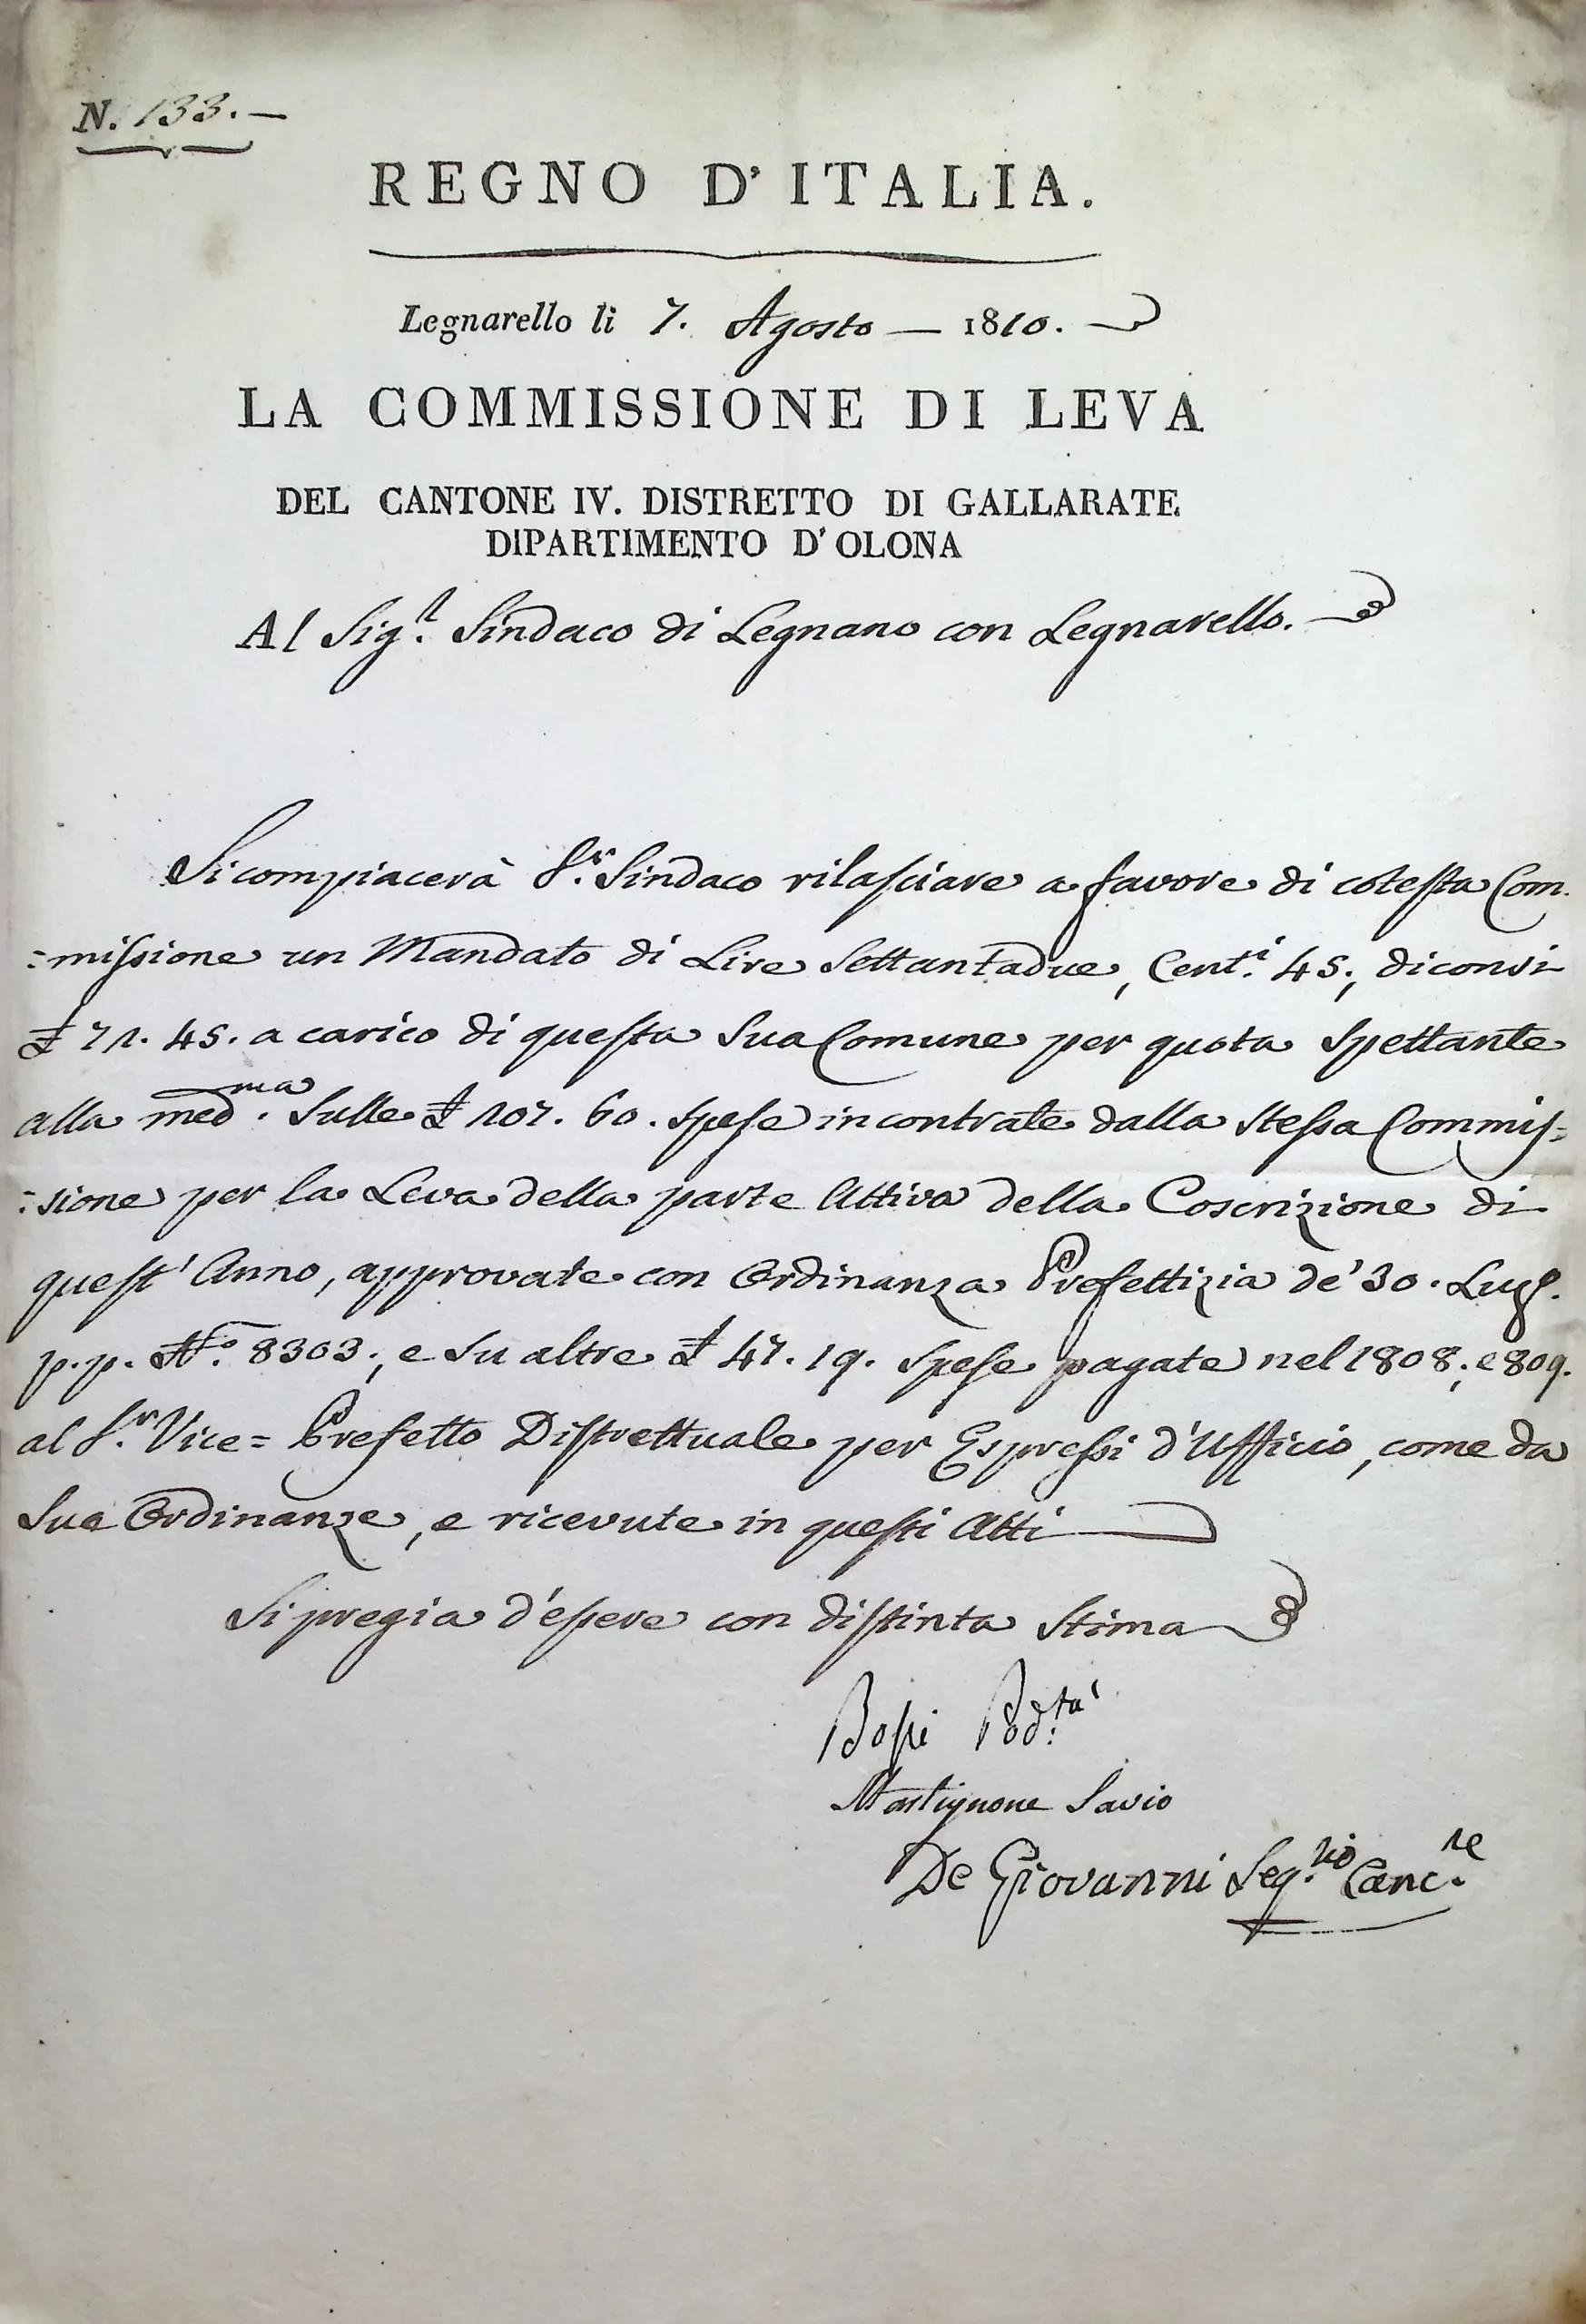 N. 133. —
REGNO D'ITALIA.
Legnarello li 7. Agosto — 1810.
LA COMMISSIONE DI LEVA
DEL CANTONE IV. DISTRETTO DI GALLARATE
DIPARTIMENTO D'OLONA
Al Sig.r Sindaco di Legnano con Legnarello.
Si compiacerà S.r Sindaco rilasciare a favore di cotesta Com.
=missione un Mandato di Lire Settantadue, Cent.i 45., diconsi
£ 72. 45. a carico di questa Sua Comune per quota spettante
alla med.ma Sulle £ 107. 60. spese incontrate dalla stessa Commis=
=sione per la Leva della parte Attiva della Coscrizione di
quest'Anno, approvate con Ordinanza Prefettizia de' 30. Lug.
p.p. N.o 8303., e su altre £ 47. 19. spese pagate nel 1808., e 809.
al S.r Vice=Prefetto Distrettuale per Espressi d'Ufficio, come da
Sue Ordinanze, e ricevute in questi Atti
Si pregia d'essere con distinta stima
Bossi Pod.tà
Mastignone Savio
De Giovanni Seg.rio Canc.re